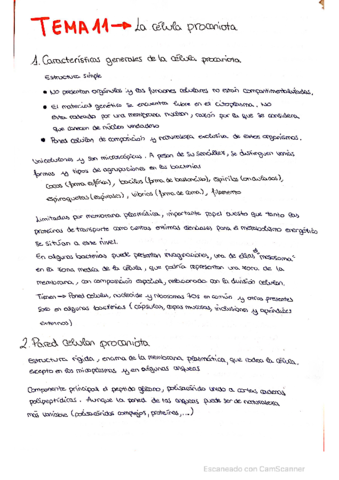 TEMA 11 → La célula procariota
1. Características generales de la célula procariota
Estructura simple
• No presentan orgánulos y las funciones celulares no están compartimentalizadas.
• El material genético se encuentra libre en el citoplasma. No
está rodeado por una membrana nuclear, razón por la que se considera
que carecen de núcleo verdadero
• Pared celular de composición y naturaleza exclusiva de estos organismos.
Unicelulares y son microscópicas. A pesar de su sencillez, se distinguen varias
formas y tipos de agrupaciones en las bacterias
cocos (forma esférica), bacilos (forma de bastoncillo), espirilos (ondulados),
espiroquetas (espirales), vibrios (forma de coma), filamentos
Limitadas por membrana plasmática, importante papel puesto que tanto las
proteínas de transporte como ciertas enzimas esenciales para el metabolismo energético
se sitúan a este nivel.
En algunas bacterias puede presentar invaginaciones, una de ellas el "mesosoma"
en la zona media de la célula, que podría representar una zona de la
membrana, con composición especial, relacionado con la división celular.
Tienen → Pared celular, nucleoide y ribosomas 70s en común y otros presentes
solo en algunas bacterias (cápsulas, capas mucosas, inclusiones y apéndices
externos)
2. Pared celular procariota
Estructura rígida, encima de la membrana plasmática, que rodea la célula.
excepto en los micoplasmas y en algunas arqueas
Componente principal el peptidoglicano, polisacárido unido a cortas cadenas
polipeptídicas. Aunque la pared de las arqueas puede ser de naturaleza
más variable (polisacáridos complejos, proteínas,...)
Escaneado con CamScanner